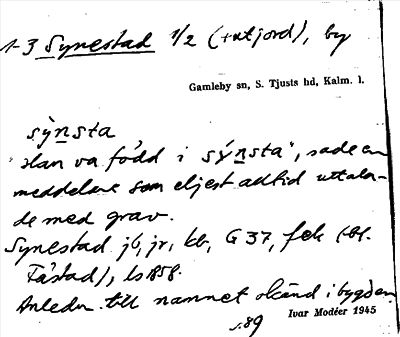 1-3 Synestad 1/2 (+utjord), by
Gamleby sn, S. Tjusts hd, Kalm. l.
sỳnsta
"Han va född i sýnsta", sade en
meddelare som eljest alltid uttala-
de med grav.
Synestad jb, jr, kb, G 37, fek (bl.
Fåstad), ls 1858.
Anledn. till namnet okänd i bygden.
Ivar Modéer 1945
s. 89